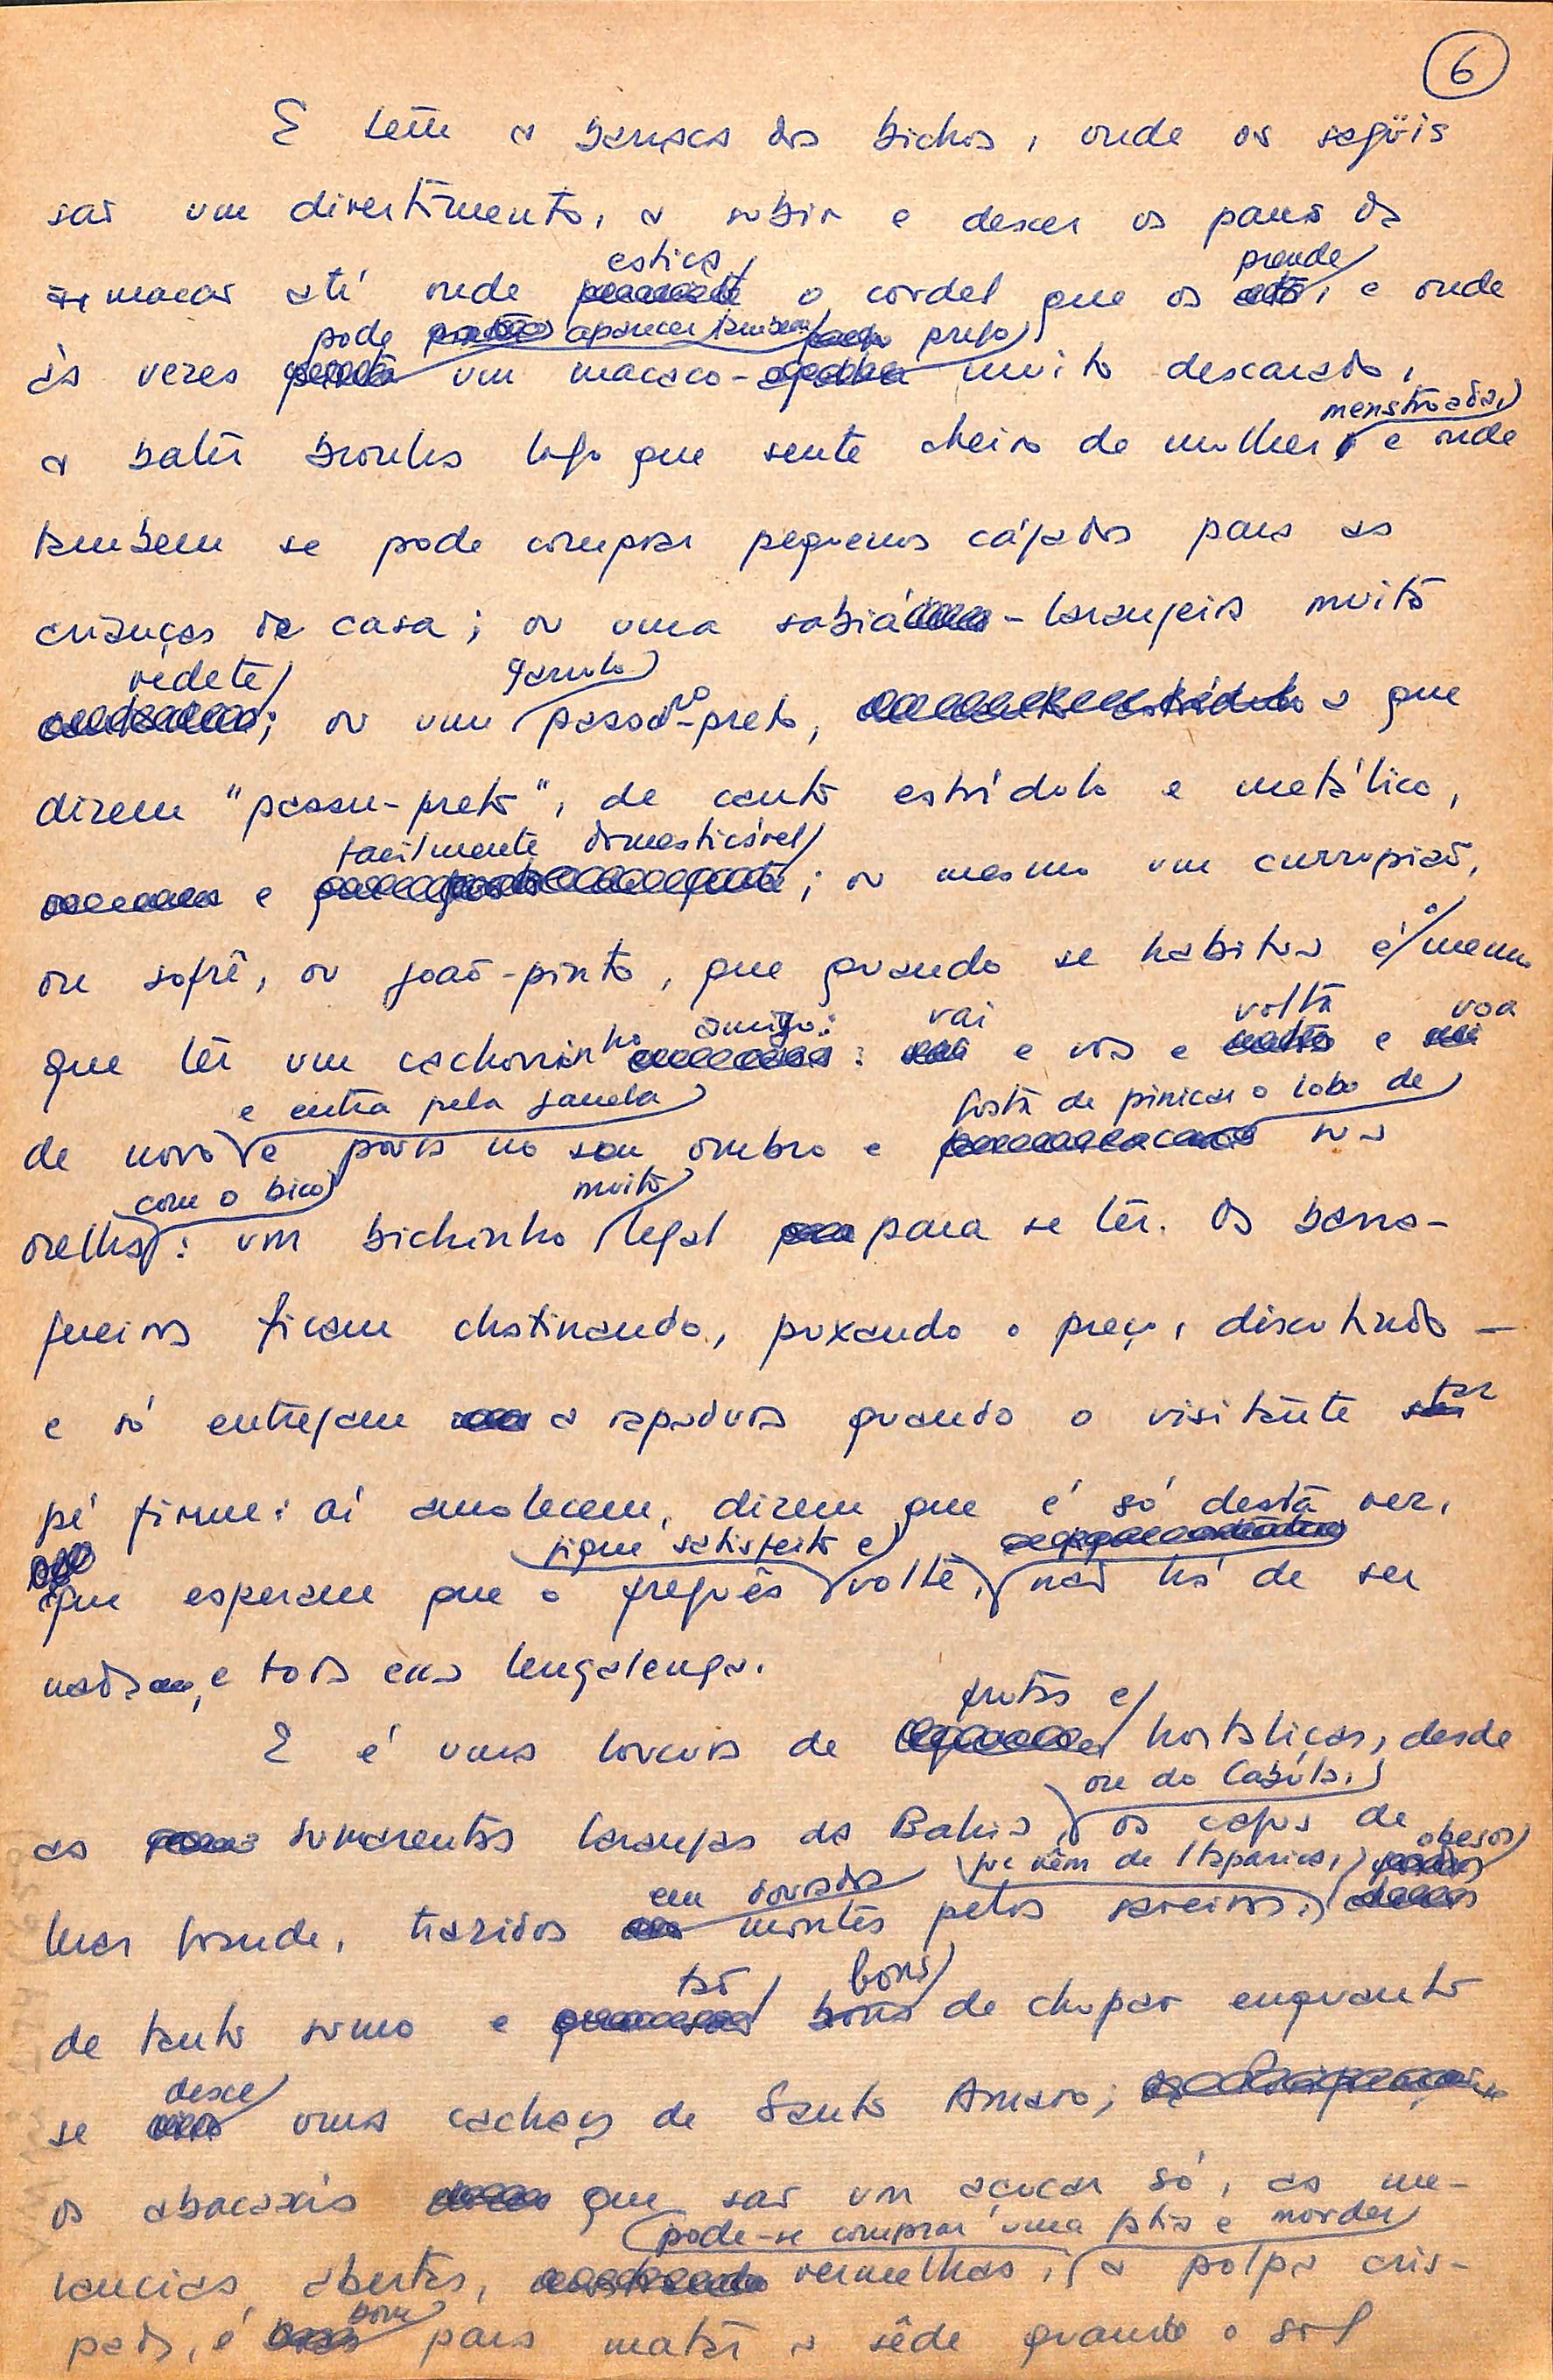 6
E tem a barraca dos bichos, onde os sagüis
são um divertimento, a subir e descer os paus da
armação até onde estica o cordel que os prende, e onde
às vezes pode aparecer também um macaco-prego muito descarado,
a bater bronha logo que sente cheiro de mulher menstruada, e onde
também se pode comprar pequenos cágados para as
crianças de casa; ou uma sabiá-laranjeira muito
vedete; ou um garrulo passaro-preto, a que
dizem "passu-preto", de canto estrídulo e metálico,
e facilmente domesticável; ou mesmo um currupião,
ou sofrê, ou joão-pinto, que quando se habitua é o mesmo
que ter um cachorrinho amigo: vai e voa e volta e voa
de novo e entra pela janela e pousa no seu ombro e gosta de pinicar o lobo de sua
orelha com o bico: um bichinho muito legal para se ter. Os barra-
queiros ficam chatinando, puxando o preço, discutindo —
e só entregam a rapadura quando o visitante faz
pé firme: aí amolecem, dizem que é só desta vez,
que esperam que o freguês fique satisfeito e volte, não há de ser
nada, e toda essa lengalenga.
E é uma loucura de frutas e hortaliças, desde
as sumarentas laranjas da Bahia, ou do Cabula, os cajus de
Mar Grande, trazidos em dourados montes pelos saveiros, que vêm de Itaparica, obesos
de tanto sumo e tão bons de chupar enquanto
se desce uma cachaça de Santo Amaro;
os abacaxis que são um açucar só, as me-
lancias abertas, vermelhas, pode-se comprar uma fatia e morder a polpa cris-
pada, é bom para matar a sêde quando o sol